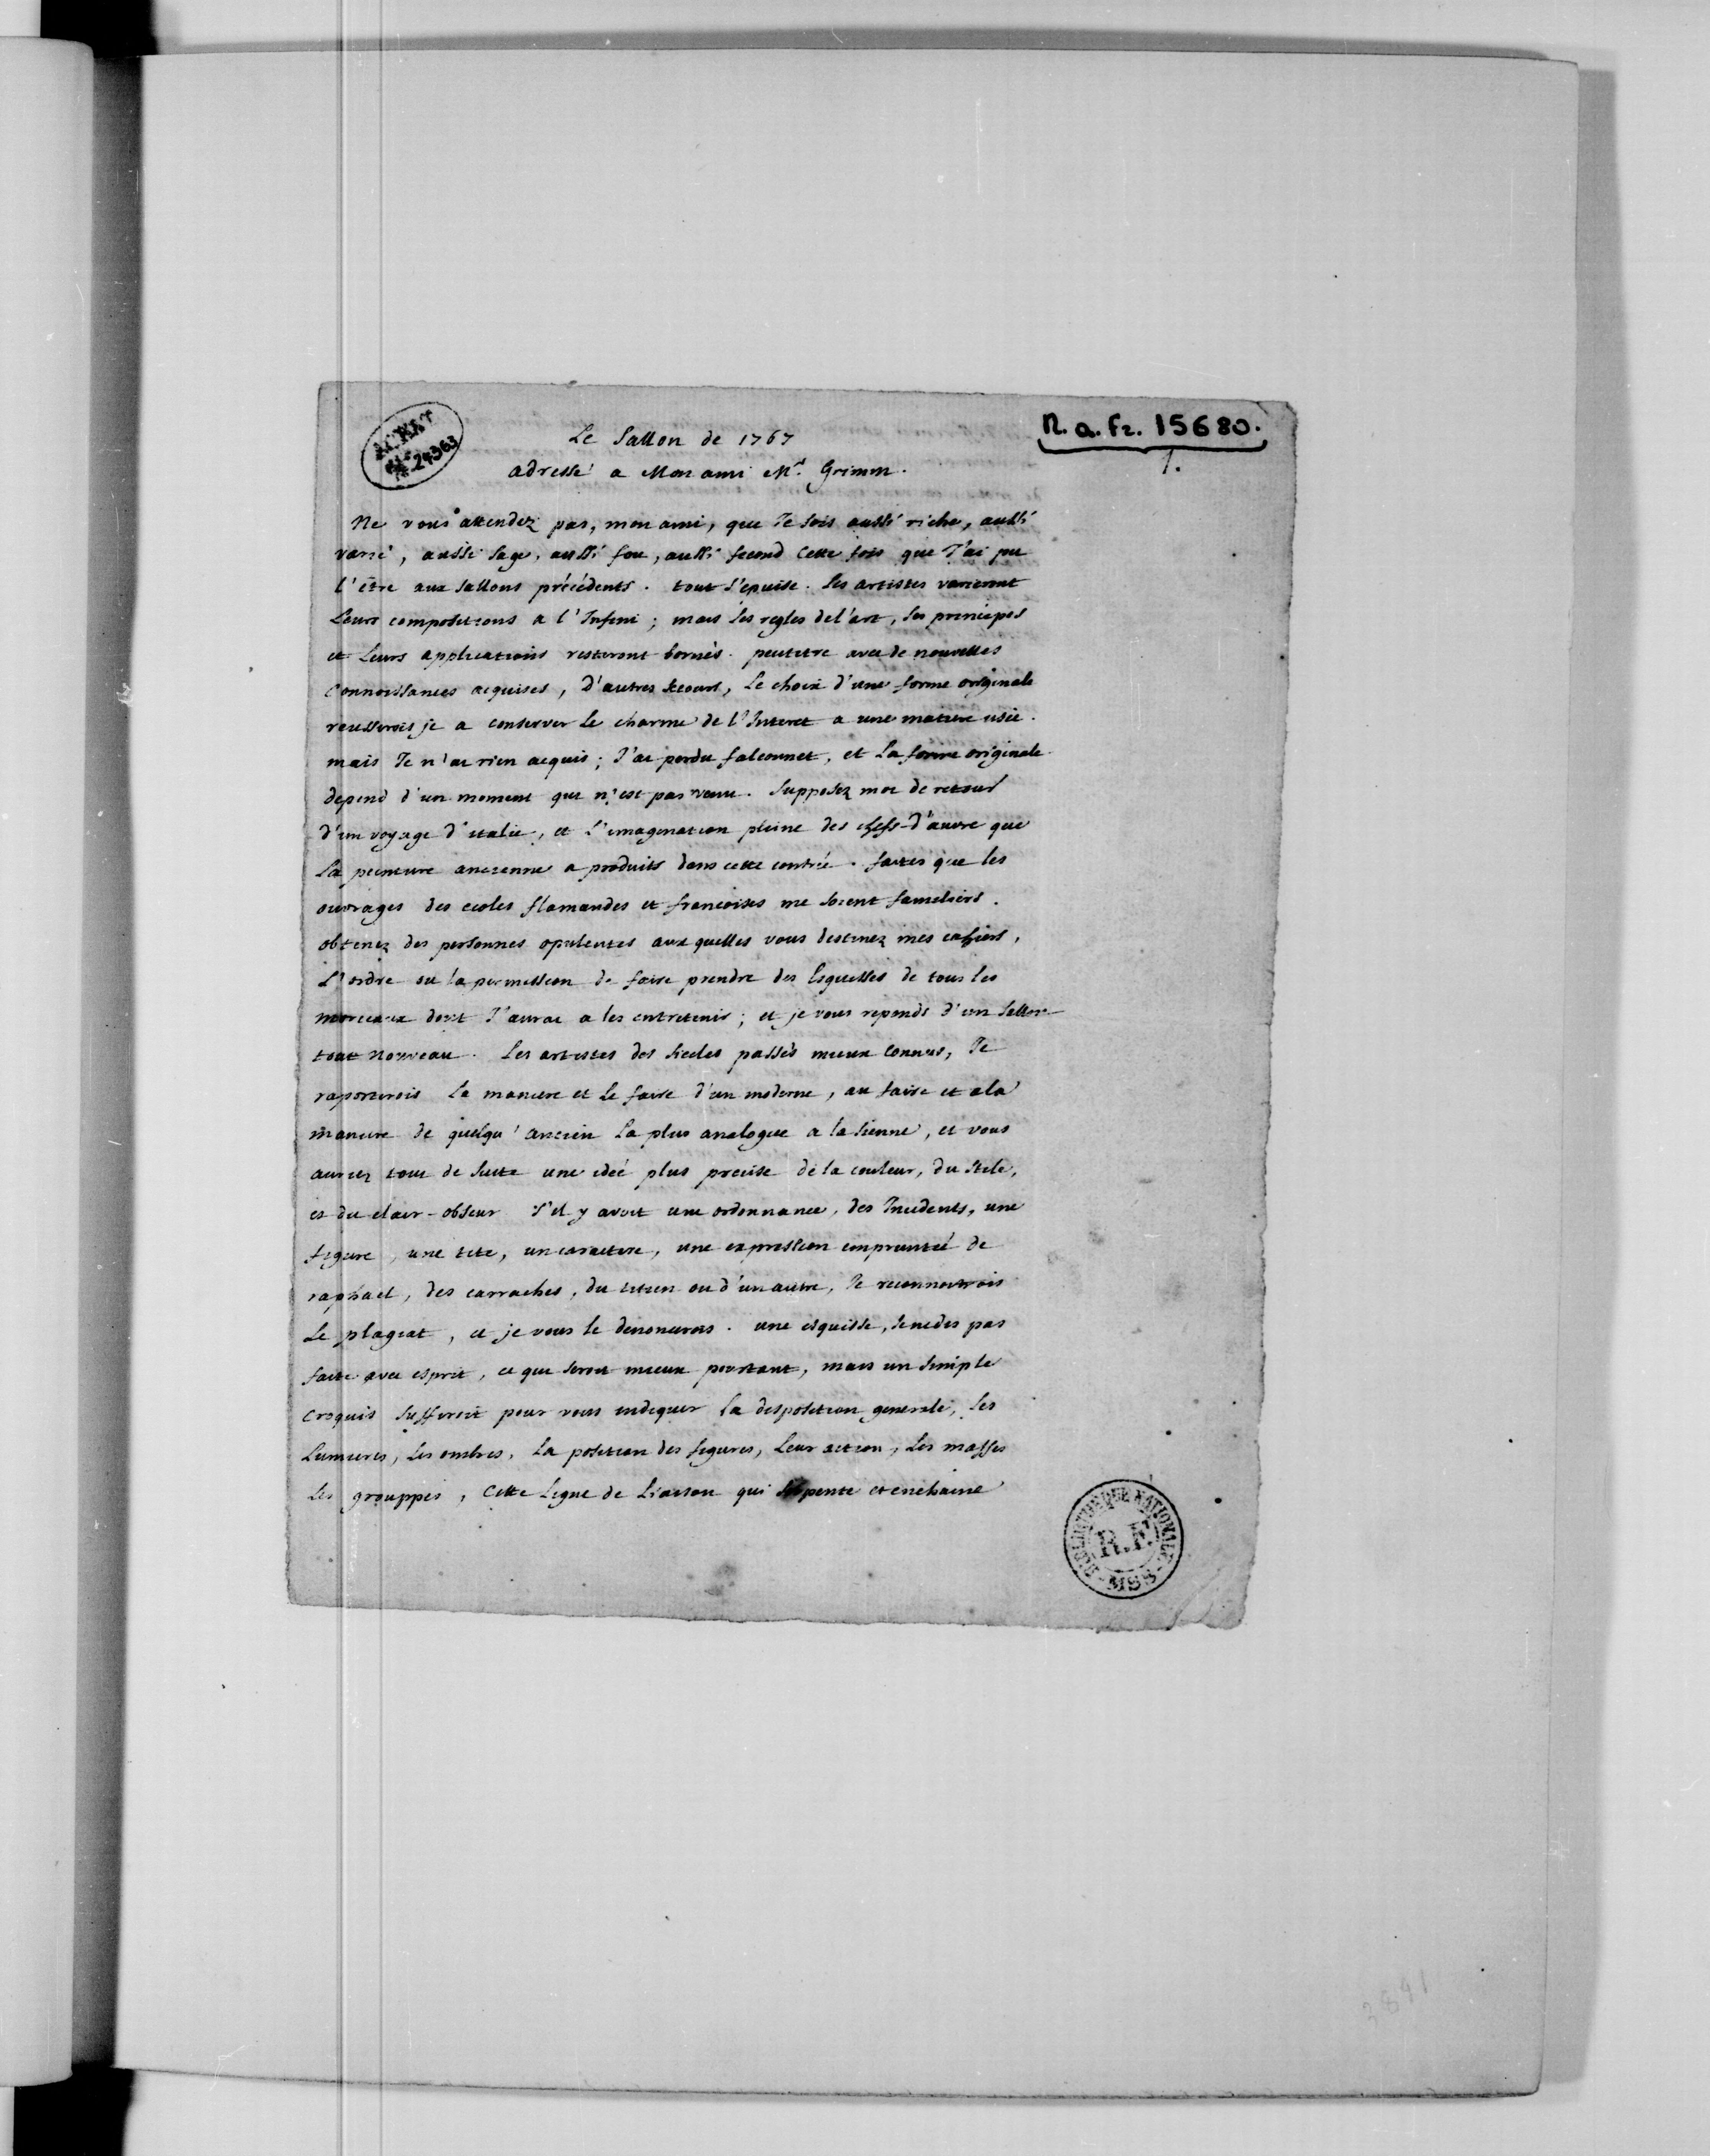 ACHAT
N° 24363
N. a. fr. 15680.
1.
Le Sallon de 1767
adressé a Mon ami Mr. Grimm.
Ne vous attendez pas, mon ami, que Je sois aussi riche, aussi
varié, aussi sage, aussi fou, aussi fecond cette fois que J'ai pu
l'être aux sallons précédents. tout s'epuise. Les artistes varieront
Leurs compositions a l'Infini; mais les regles de l'art, ses principes
et leurs applications resteront bornés. peutetre avec de nouvelles
connoissances acquises, d'autres secours, le choix d'une forme originale
reussirois je a conserver le charme de l'Interet a une matiere usée.
mais Je n'ai rien acquis; J'ai perdu falconnet, et la forme originale
depend d'un moment qui n'est pas venu. Supposez moi de retour
d'un voyage d'italie, et l'imagination pleine des chefs-d'œuvre que
La peinture ancienne a produits dans cette contrée. faites que les
ouvrages des ecoles flamandes et francoises me soient familiers.
obtenez des personnes opulentes aux quelles vous destinez mes cahiers,
L'ordre ou la permission de faire prendre des Esquisses de tous les
morceaux dont J'aurai a les entretenir; et je vous reponds d'un Sallon
tout nouveau. Les artistes des siecles passés mieux connus, Je
raporterois la maniere et le faire d'un moderne, au faire et a la
maniere de quelqu'ancien la plus analogue a la sienne, et vous
auriez tout de suite une ideé plus precise de la couleur, du stile,
et du clair-obscur S'il y avoit une ordonnance, des Incidents, une
figure, une tete, un caractere, une expression empruntée de
raphael, des carraches, du titien ou d'un autre, Je reconnoitrois
Le plagiat, et je vous le denoncerois. une esquisse, Je ne dis pas
faite avec esprit, ce qui seroit mieux pourtant, mais un simple
croquis suffiroit pour vous indiquer la disposition generale, les
Lumieres, les ombres, la position des figures, leur action, les masses
Les grouppes, cette Ligne de Liaison qui serpente et enchaine
BIBLIOTHEQUE NATIONALE
R.F.
MSS